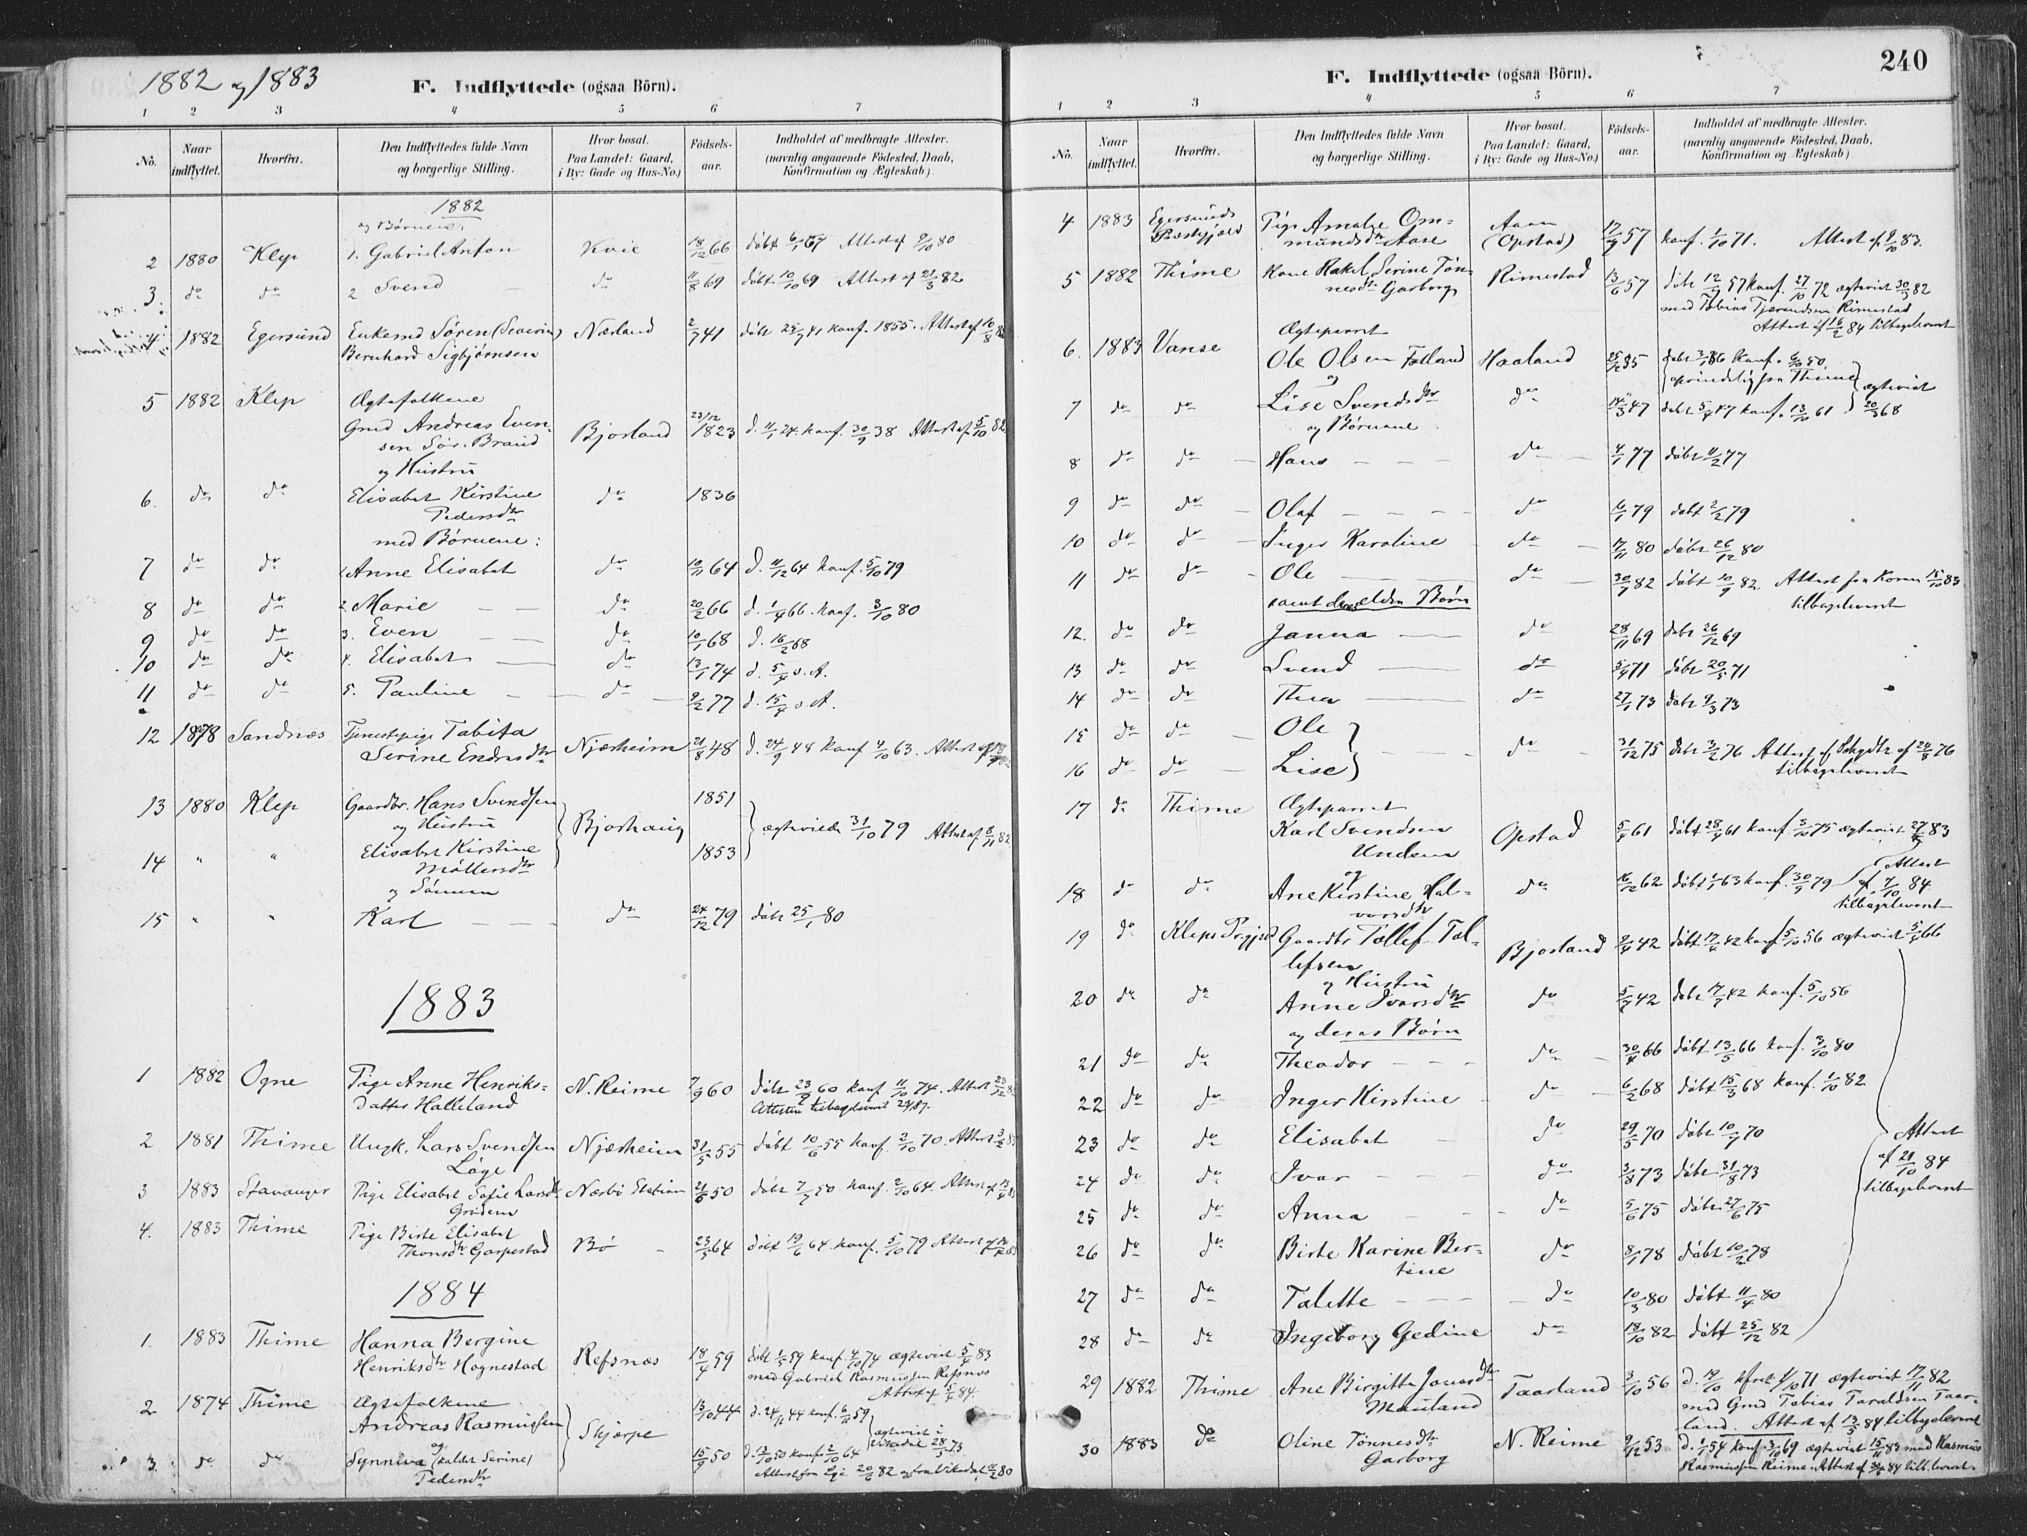 1882 og 1883
F. Indflyttede (ogsaa Börn).
1 2 3 4 5 6 7
No. Naar indflyttet. Hvorfra. Den Indflyttedes fulde Navn og borgerlige Stilling. Hvor bosat. Paa Landet: Gaard, i By: Gade og Hus-No.) Födsels-aar. Indholdet af medbragte Attester. (navnlig angaaende Födested, Daab, Konfirmation og Ægteskab)
1882
og Børnene:
2 1880 Klep 1. Gabriel Anton Kvie 18/12 66 døbt 6/1 67 Attest af 9/10 80
3. do do 2 Svend — do 11/8 69 døbt 10/10 69 Attest af 21/3 82
1882 Egersund Enkemd Søren (Severin) Nærland 2/7 41 døbt 25/7 41 konf. 1855. Attest af 10/8
Bernhard Sigbjørnsen
5 1882 Klep Ægtefolkene
Gmd Andreas Even- Bjorland 23/12 1823 d. 11/1 24. konf. 30/9 38 Attest af 5/10 82
sen Sør. Braud
og Hustru
6. do do Elisabet Kirstine do 1836
Pedersdtr
med Børnene:
7 do do 1. Anne Elisabet do 10/11 64 d. 11/12 64 konf. 5/10 79
8 do do 2. Marie — — do 20/2 66 d. 1/4 66. konf. 3/10 80
9 do do 3. Even — — do 10/1 68 d. 16/2 68
10 do do 4. Elisabet — do 13/1 74 d. 5/4 s. A.
11 do do 5. Pauline — — do — 9/2 77 d. 15/4 s. A.
12 1878 Sandnæs Tjenestepige Tabita
Serine Endresdtr Njærheim 21/8 48 d. 24/9 48 konf 4/10 63. Attest af
13 1880 Klep Gaardbr. Hans Svendsen 1851
og Hustru Bjorhaug ægteviede 31/10 79 Attest af 8/11 82
14 " " Elisabet Kirstine 1853
Møllersdtr
og Sønnen
15 " " Karl — — do 24/12 79 døbt 25/1 80
1883
1 1882 Ogne Pige Anne Henriks- N. Reime 7/9 60 døbt 23/9 60 konf 11/10 74. Attest 23/12
datter Halleland Attesten tilbagelevert
2 1881 Thime Ungk. Lars Svendsen Njærheim 31/5 55 døbt 10/6 55 konf. 2/10 70. Attest 3/2
Løge
3 1883 Stavanger Pige Elisabet Sofie Larsdtr Nærbø Station 21/6 50 døbt 7/7 50 konf. 2/10 64. Attest af
Grødem
4. 1883 Thime Pige Birte Elisabet
Thomsdtr Garpestad Bø — 23/5 64 døbt 19/6 64 konf. 5/10 79 Attest af
1884
1. 1883 Thime Hanna Bergine
Henriksdtr Hognestad Refsnæs 18/4 59 døbt 1/5 59 konf 4/10 74 ægteviet 5/4 83
med Gabriel Rasmussen Refsnæs
Attest af 5/4 84.
2 1874 Thime Ægtefolkene 13/10 44 d. 24/11 44 konf. 6/11 59
Andreas Rasmussen Skjerpe ægteviet i
og
3. do do Synneva (kaldet Serine) 15/9 50 d. 13/10 50 konf 2/10 64
Pedersdtr
240
F. Indflyttede (ogsaa Börn).
1 2 3 4 5 6 7
No. Naar indflyttet. Hvorfra. Den Indflyttedes fulde Navn og borgerlige Stilling. Hvor bosat. Paa Landet: Gaard, i By: Gade og Hus-No.) Födsels-aar. Indholdet af medbragte Attester. (navnlig angaaende Födested, Daab, Konfirmation og Ægteskab)
4 1883 Egersunds Pige Amalie Om- Aam 12/9 57 konf. 1/10 71. Attest af 9/10 83.
Præstgjæld mundsdtr Aase (Opstad)
5 1882 Thime Kone Rakel Serine Tøn- Rimestad 13/6 57 døbt 12/7 57 konf. 27/10 72 ægteviet 30/3 82
nesdtr Garborg med Tobias Tjerandsen Rimestad
Attest af 16/2 84 tilbagelevert
Ægteparret
6. 1883 Vanse Ole Olsen Fotland Haaland 25/12 35 døbt 3/1 36 konf. 6/10 50.
og oprindelig fra Thime ægteviet
7 do do Lise Svendsdtr do 14/3 47 døbt 5/4 47 konf. 13/10 61 20/3 68
og Børnene
8 do do — Hans — — — do — 4/1 77 døbt 11/2 77
9 do do — Olaf — — — — do 6/1 79 døbt 2/2 79
10 do do — Inger Karoline — do — 17/11 80 døbt 26/12 80
11 do do — Ole — do — 30/7 82 døbt 10/9 82. Attest fra Koron 15/10 83.
samt deres ældre Børn tilbagelevert
12. do do Janna — do 28/11 69 døbt 26/12 69
13 do do Svend — do 5/4 71 døbt 20/5 71
14 do do Thea — do 27/1 73 døbt 9/3 73
15 do do — Ole
do — 31/12 75 døbt 3/2 76 Attest af 24/8 76
16 do do — Lise tilbagelevert
17 do Thime Ægteparret
Karl Svendsen Opstad 5/4 61 døbt 28/4 61 konf. 3/10 75 ægteviet 27/5 83
Undem Attest
og af 7/10 84.
18 do do Ane Kirstine Hal- do 16/12 62 døbt 1/1 63 konf. 30/9 79 tilbagelevert
vorsdtr
19 do Kleps Prgjæld Gaardbr Tollef Tol- Bjorland 2/4 42 døbt 17/4 42 konf 5/10 56 ægteviet 5/4 66
lefsen
og Hustru
20 do do Anne Ivarsdtr do 5/7 42 døbt 17/7 42 konf. 5/10 56
og deres Børn
21 do do Theodor — — — do — 30/4 66 døbt 13/5 66 konf. 3/10 80
22 do do Inger Kirstine — do — 6/2 68 døbt 15/3 68 konf. 1/10 82
23 do do Elisabet — do 29/5 70 døbt 10/7 70 Attest
24 do do Ivar — — — do 3/8 73 døbt 31/8 73 af 21/10 84
tilbagelevert
25 do do Anna — — — do 5/6 75 døbt 27/6 75
26 do do Birte Karine Ber- do 8/1 78 døbt 10/2 78
tine
27 do do Tolette — — — do 10/3 80 døbt 11/4 80
28 do do Ingeborg Gedine do 18/10 82 døbt 25/12 82
29 1882 Thime Ane Birgitta Jonasdtr Taarland 3/10 56 d. 19/10 kfret 1/10 71 ægteviet 17/11 82
Mauland med Gmd Tobias Taraldsen Taar-
land. Attest af 13/5 84 tilbagelevert
30 1883 do Oline Tønnesdtr N. Reime 2/12 53 d. 1/1 54 konf. 3/10 69 ægteviet 15/11 83 med Rasmus
Garborg Rasmussen Reime. Attest af 84 tilb.levert.